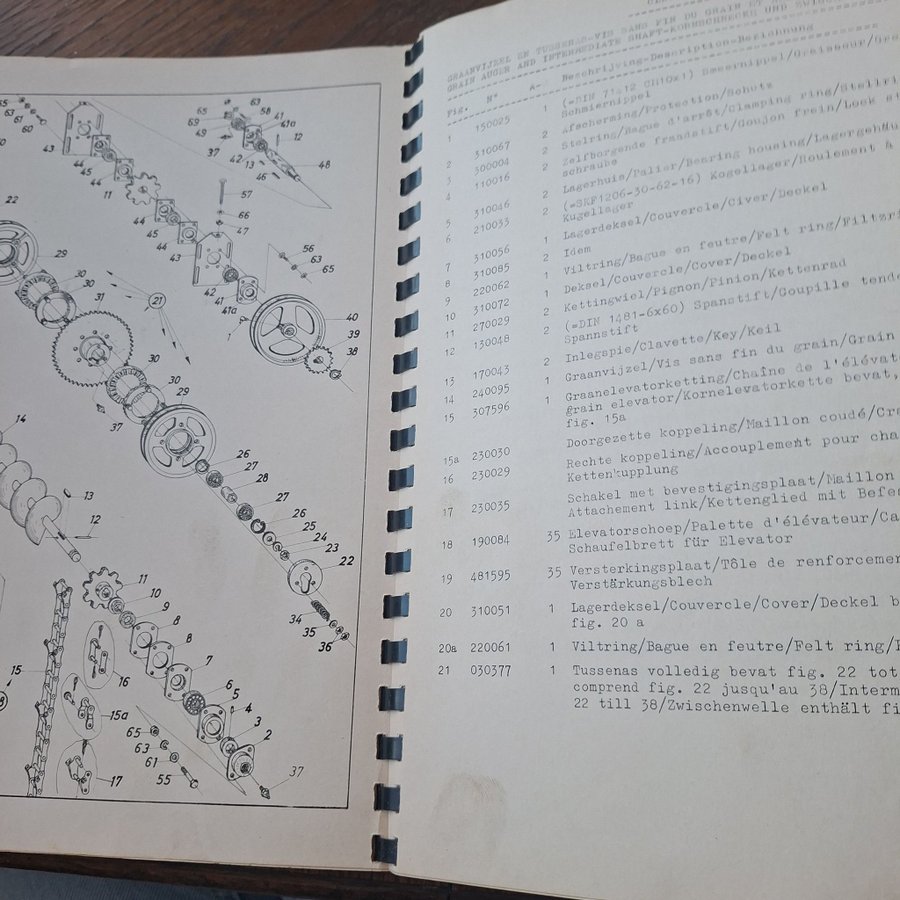 GRAANVIJZEL EN TUSSENAS-VIS SANS FIN DU GRAIN ET
GRAIN AUGER AND INTERMEDIATE SHAFT-KORNSCHNECKE UND
Fig. N° A- Beschrijving-Description-Bezeichnung
1 150025 1 (=DIN 71412 CM10x1) Smeernippel/Graisseur/
Schmiernippel
2 310067 2 Afscherming/Protection/Schutz
3 300004 2 Stelring/Bague d'arrêt/Clamping ring/
4 110016 2 Zelfborgende fraadstift/Goujon frein/Lock
schraube
5 310046 2 Lagerhuis/Palier/Bearing housing/
6 210033 2 (=SKF1206-30-62-16) Kogellager/Roulement
Kugellager
7 310056 1 Lagerdeksel/Couvercle/Civer/Deckel
8 310085 2 Idem
9 220062 1 Viltring/Bague en feutre/Felt ring/
10 310072 1 Deksel/Couvercle/Cover/Deckel
11 270029 2 Kettingwiel/Pignon/Pinion/Kettenrad
12 130048 2 (=DIN 1481-6x60) Spanstift/Goupille
Spannstift
13 170043 2 Inlegspie/Clavette/Key/Keil
14 240095 1 Graanvijzel/Vis sans fin du grain/Grain
15 307596 1 Graanelevatorketting/Chaîne de
grain elevator/Kornelevatorkette bevat,
fig. 15a
15a 230030 Doorgezette koppeling/Maillon coudé/
16 230029 Rechte koppeling/Accouplement pour
Kettenkupplung
17 230035 Schakel met bevestigingsplaat/Maillon
Attachement link/Kettenglied mit
18 190084 35 Elevatorschoep/Palette d'élévateur/
Schaufelbrett für Elevator
19 481595 35 Versterkingsplaat/Tôle de
Verstärkungsblech
20 310051 1 Lagerdeksel/Couvercle/Cover/Deckel
fig. 20 a
20a 220061 1 Viltring/Bague en feutre/Felt ring/
21 030377 1 Tussenas volledig bevat fig. 22 tot
comprend fig. 22 jusqu'au 38/
22 till 38/Zwischenwelle enthält
65 63 61 60 43 45 44 44 11
65 63 58 69 41 41a 12 49 37 42 13 46 48
57 66 47 44 45 44 43 42 41a
56 63 65
22 29 30 31 30 29 37 21
1 40 39 38
26 27 28 27 26 25 24 23 22
34 35 36
14 13 12
11 10 9 8 8 7 6 5 4 3 2
15 16 15a 17
65 63 61 55 37